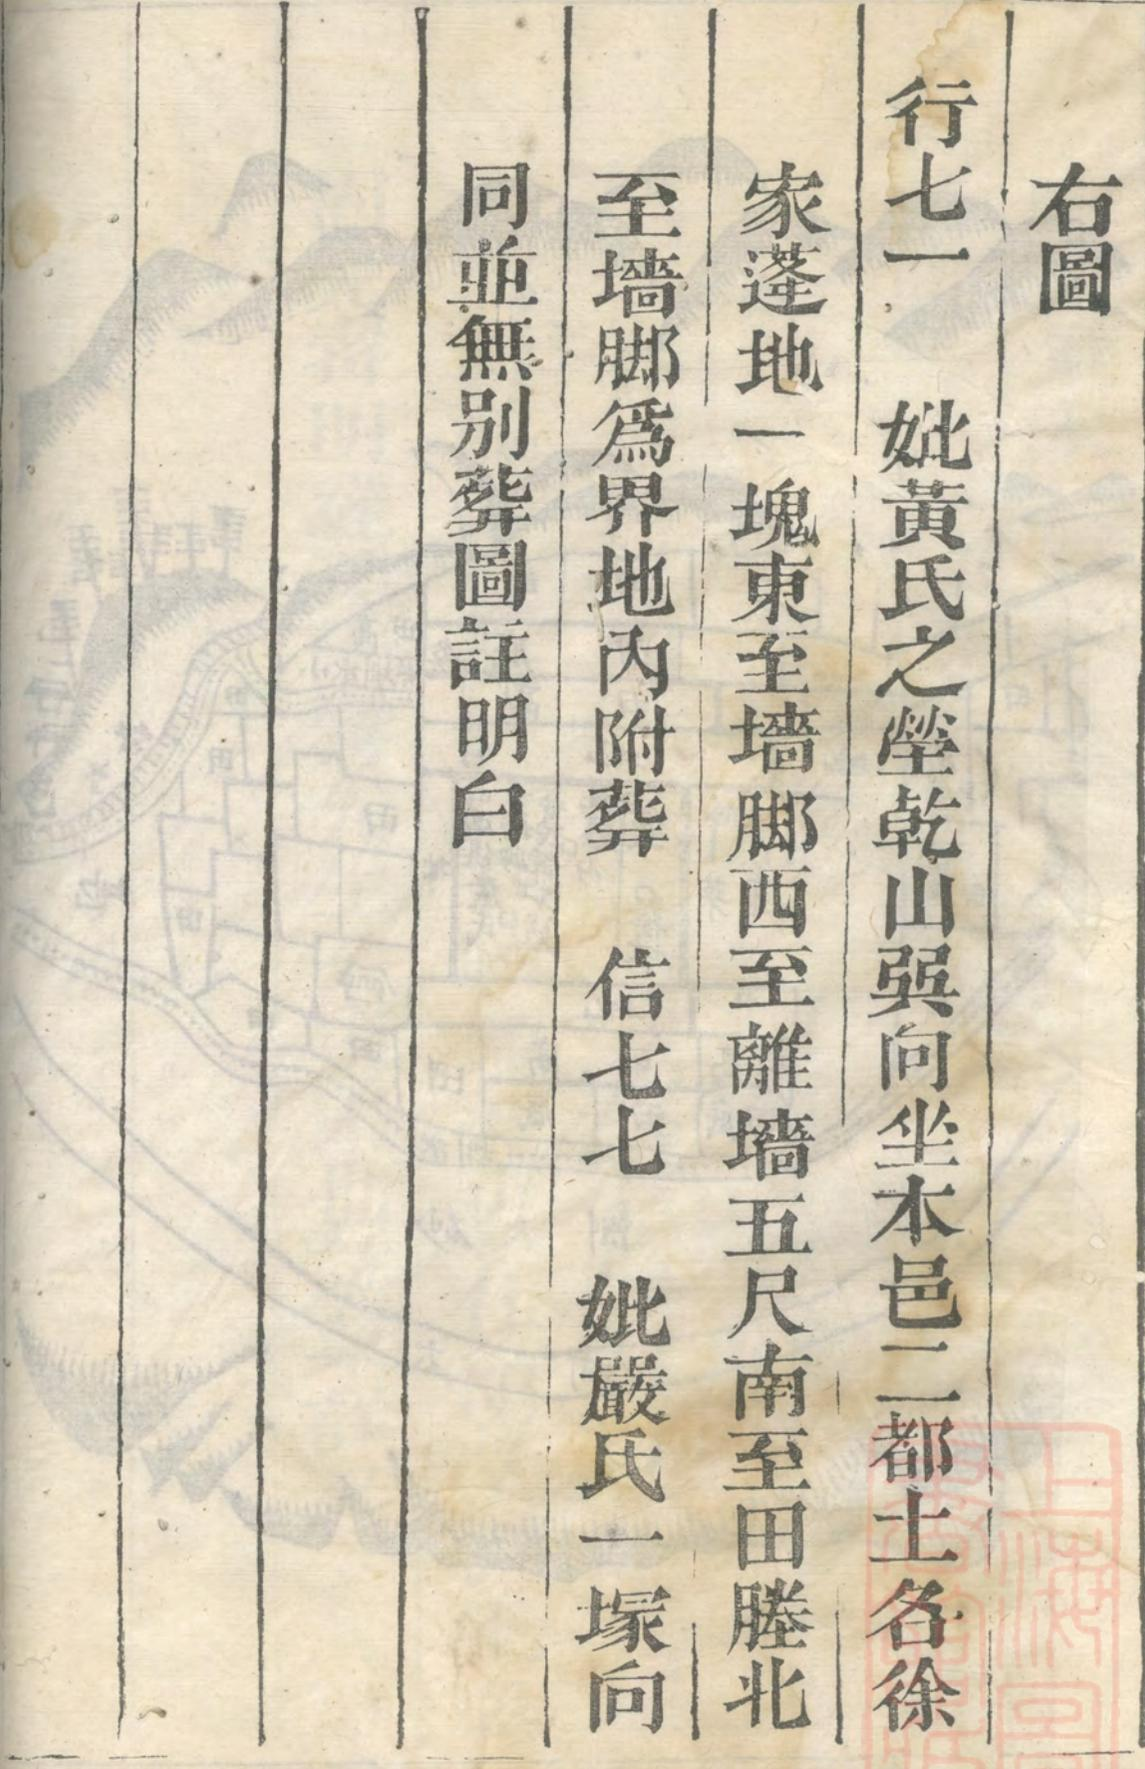 右圖
行七一 妣黃氏之塋乾山巽向坐本邑二都土名徐
家蓬地一塊東至墻脚西至離墻五尺南至田塍北
至墻脚爲界地內附葬 信七七 妣嚴氏一塚向
同並無別葬圖註明白
上海